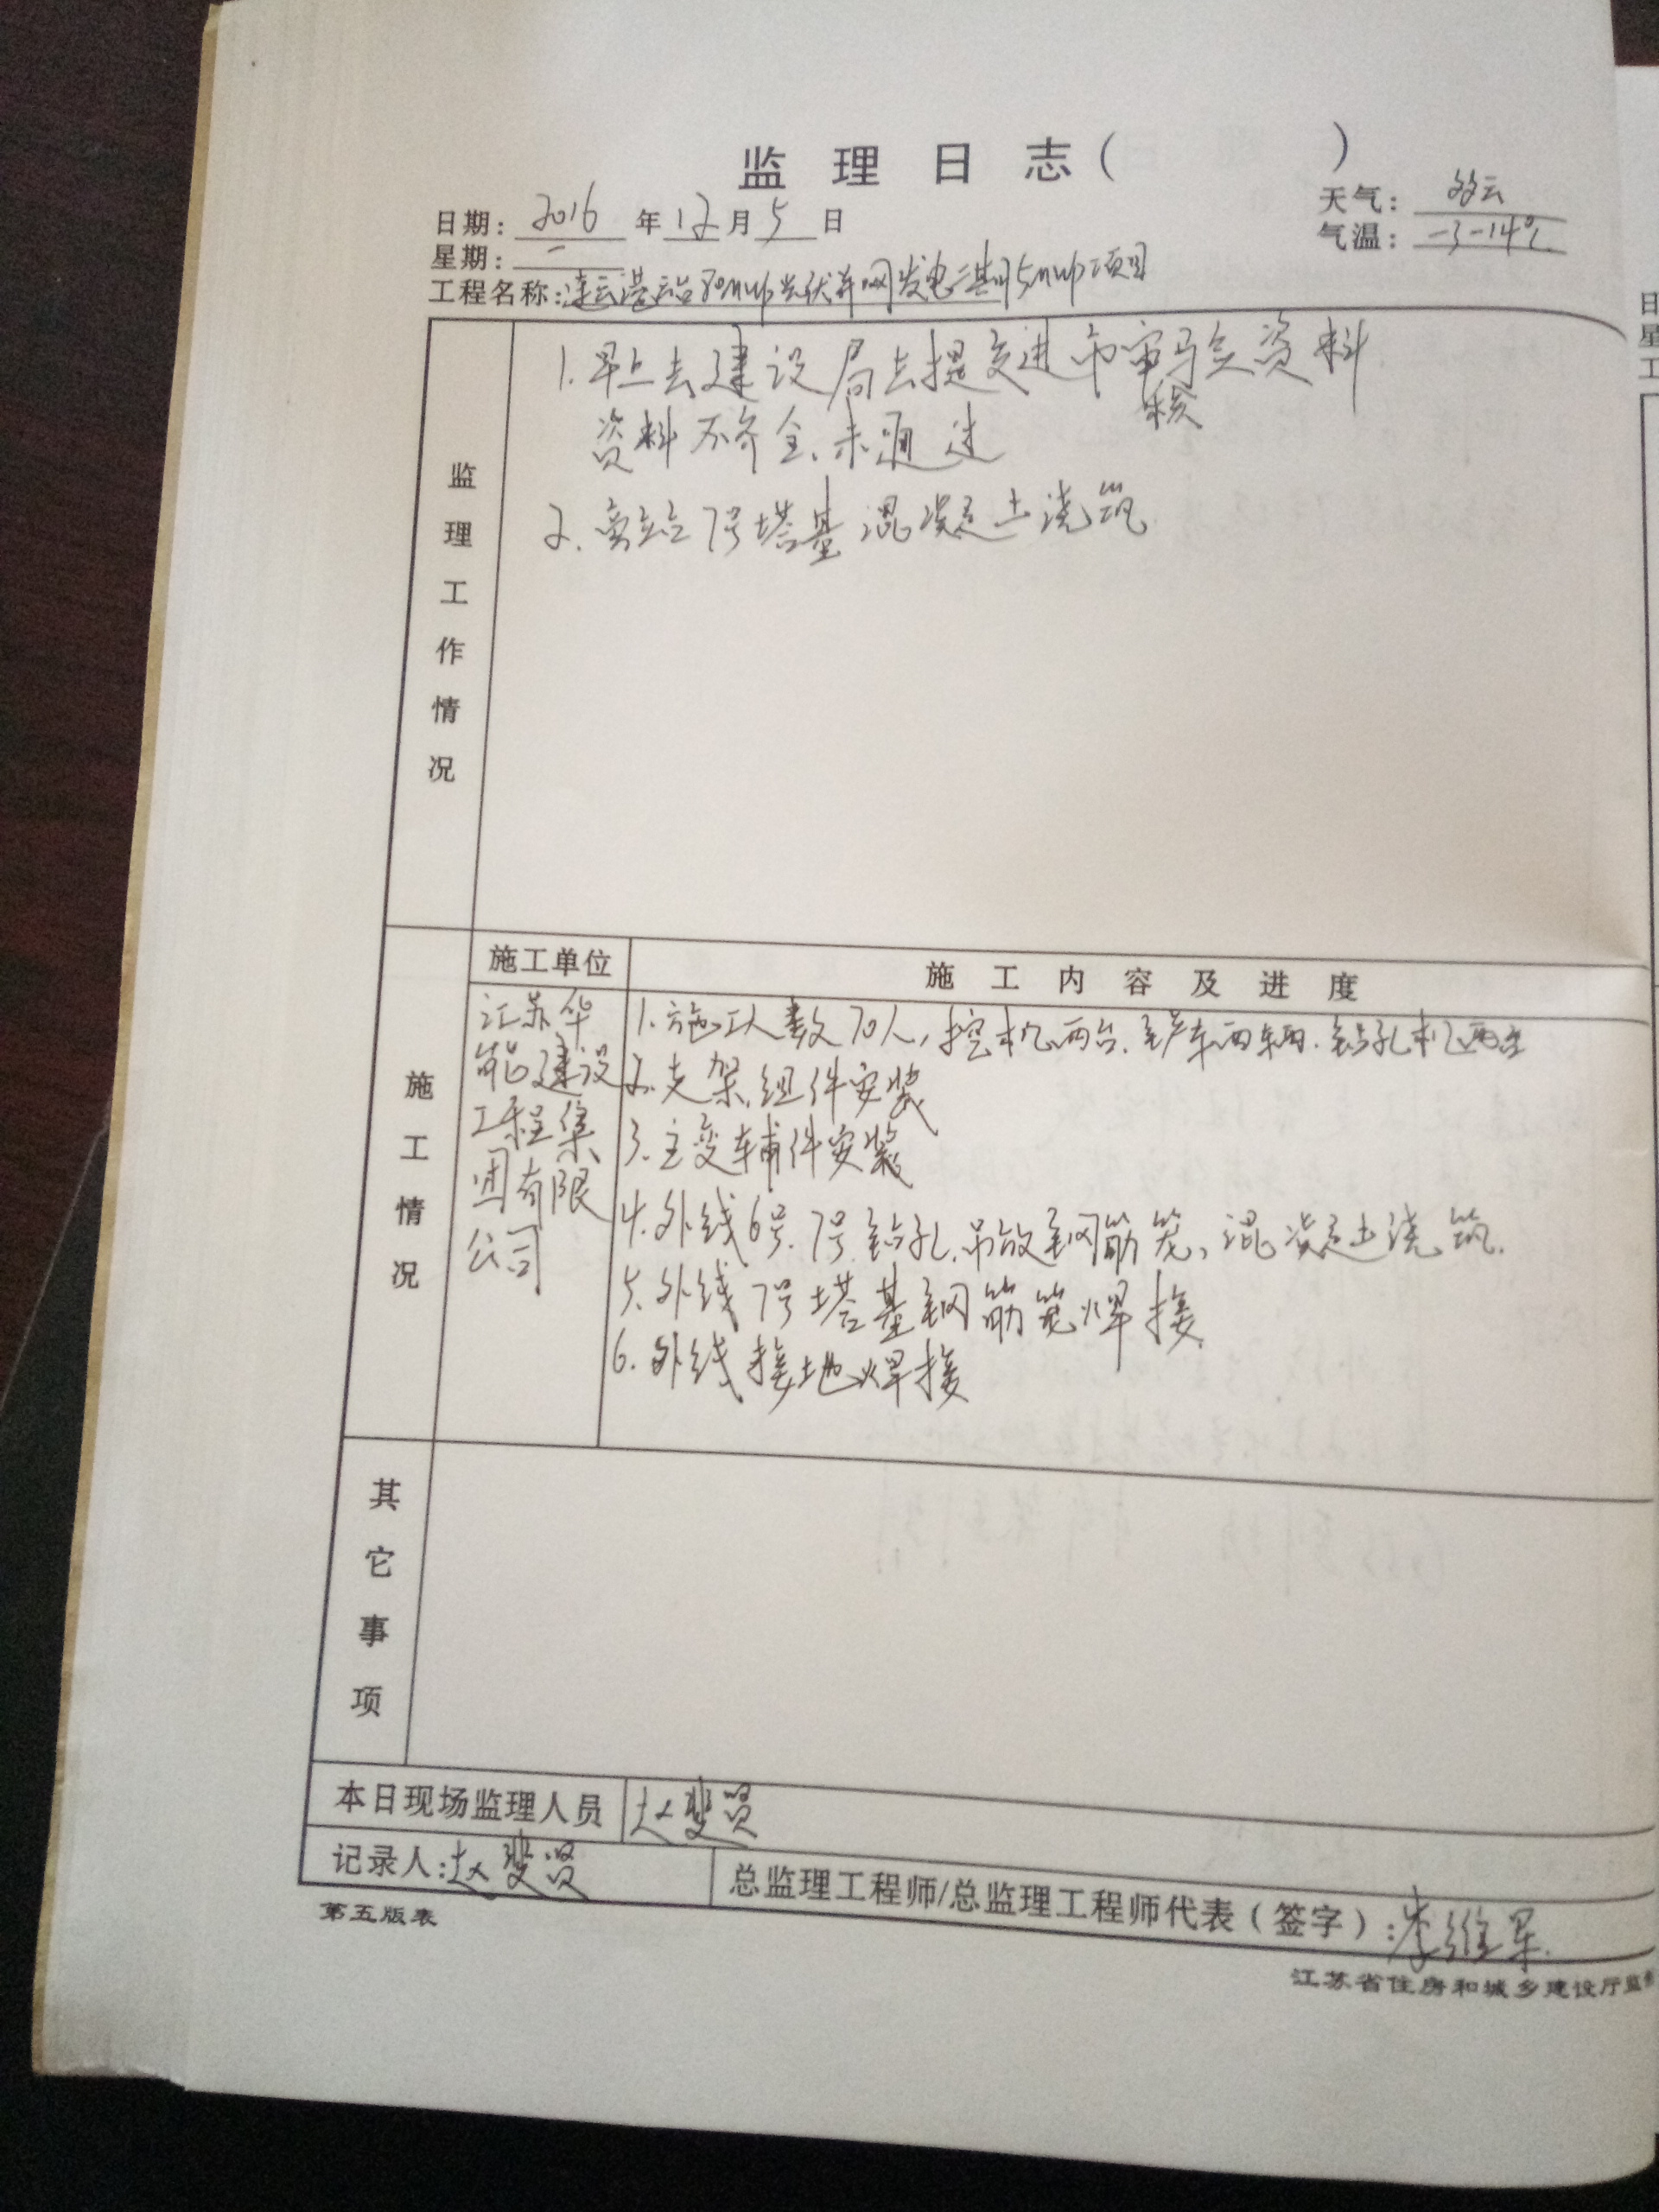 监 理 日 志（ ）
日期：2016 年 12 月 5 日
天气：多云
星期：一
气温：-3-14℃
工程名称：连云港云台80mwp光伏并网发电二期15mwp项目
监理工作情况
1.早上去建设局去提交进市审核资料
资料不齐全、未通过
2.旁站7号塔基混凝土浇筑
施工情况
施工单位
施 工 内 容 及 进 度
江苏华
能建设
工程集
团有限
公司
1.施工人数70人，挖机两台、铲车两辆、钻孔机两台
2.支架、组件安装
3.主变辅件安装
4.外线6号、7号钻孔、吊放钢筋笼、混凝土浇筑.
5.外线7号塔基钢筋笼焊接
6.外线接地焊接
其它事项
本日现场监理人员 赵斐贤
记录人：赵斐贤
总监理工程师/总监理工程师代表（签字）：李维军
第五版表
江苏省住房和城乡建设厅监
日
星
工